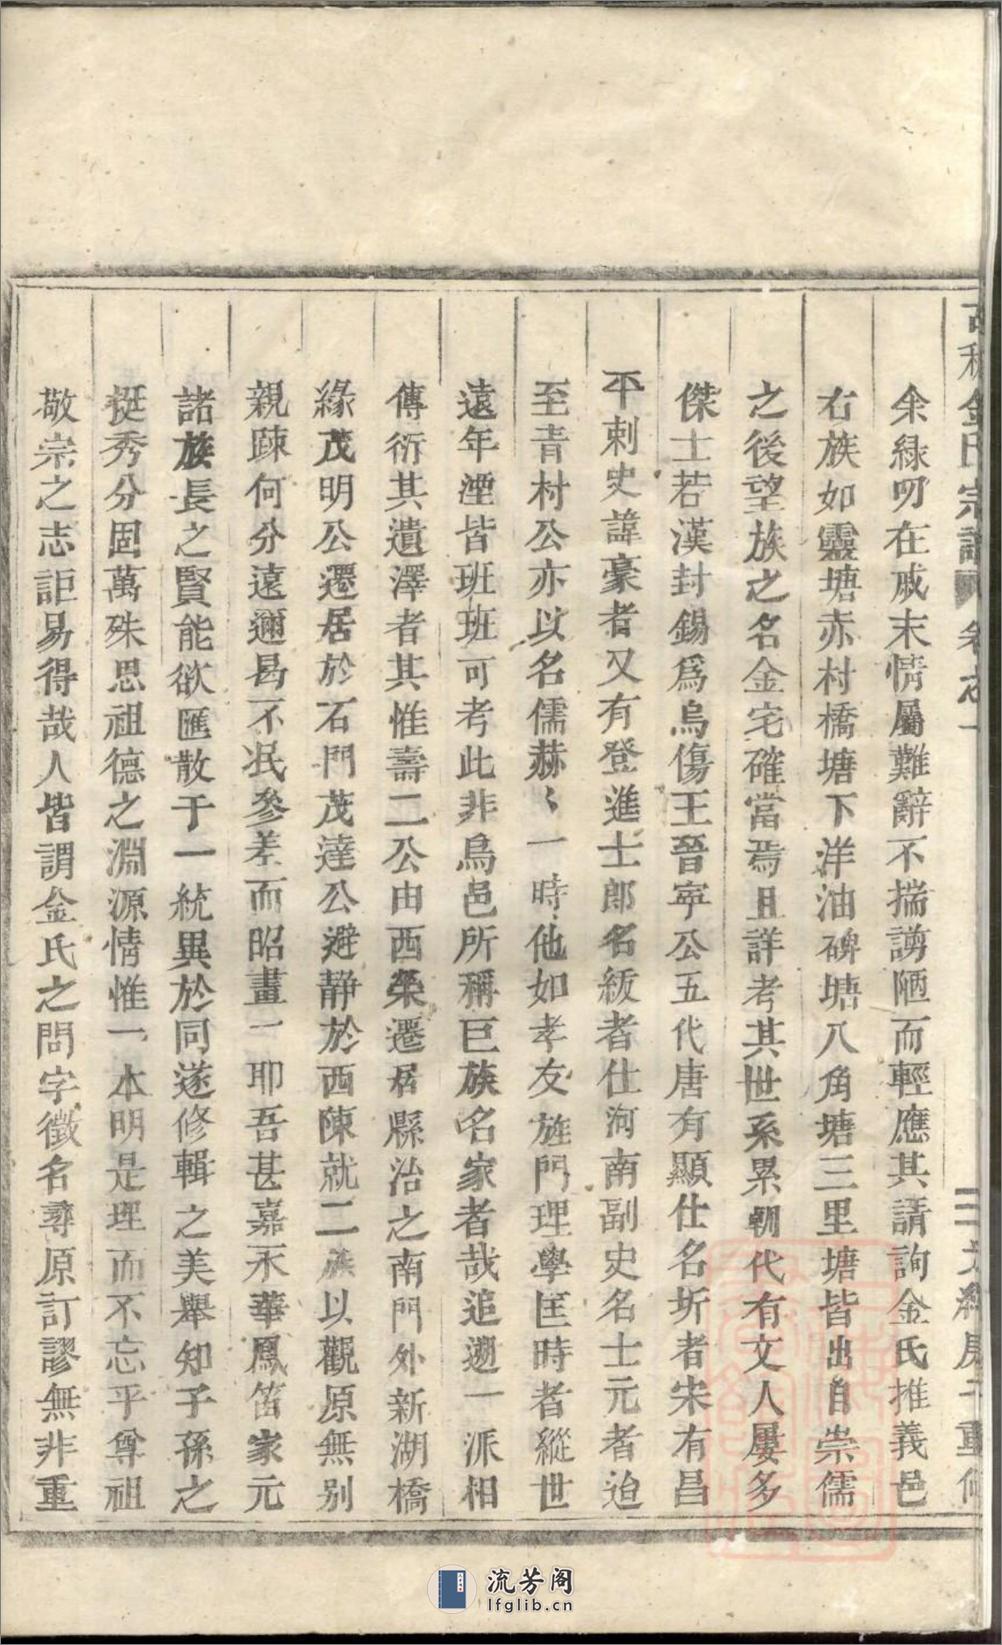 余緑叨在戚末情屬難辭不揣謭陋而輕應其請詢金氏推義邑
右族如靈塘赤村橋塘下洋油碑塘八角塘三里塘皆出自崇儒
之後望族之名金宅確當焉且詳考其世系累朝代有文人屢多
傑士若漢封錫爲烏傷王晉寧公五代唐有顯仕名圻者宋有昌
平刺史諱豪者又有登進士郎名紱者仕河南副史名士元者迨
至青村公亦以名儒赫〻一時他如孝友旌門理學匡時者縱世
遠年湮皆班班可考此非烏邑所稱巨族名家者哉追遡一派相
傳衍其遺澤者其惟壽二公由西榮遷居縣治之南門外新湖橋
緣茂明公遷居於石門茂達公避静於西陳就二族以觀原無别
親疎何分遠邇曷不泯參差而昭畫一耶吾甚嘉禾華鳳笛家元
諸族長之賢能欲匯散于一統異於同遂修輯之美舉知子孫之
挺秀分固萬殊思祖德之淵源情惟一本明是理而不忘乎尊祖
敬宗之志詎易得哉人皆謂金氏之問字徵名尋原訂謬無非重
金氏宗譜 卷之一
流芳阁
lfglib.cn